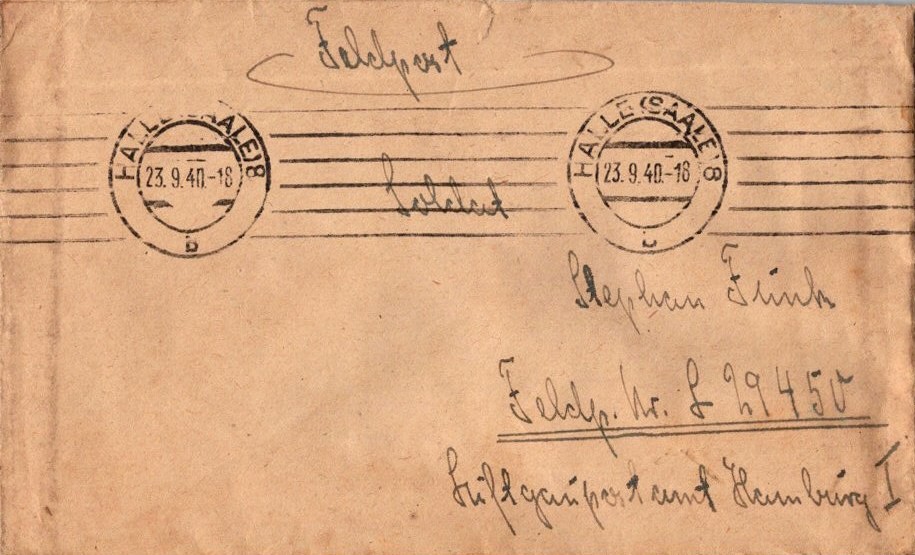 Feldpost
HALLE (SAALE) 8
23.9.40.-18
b
HALLE (SAALE) 8
23.9.40.-18
Soldat
Stephan Funk
Feldp. Nr. L 29450
Luftgaupostamt Hamburg I